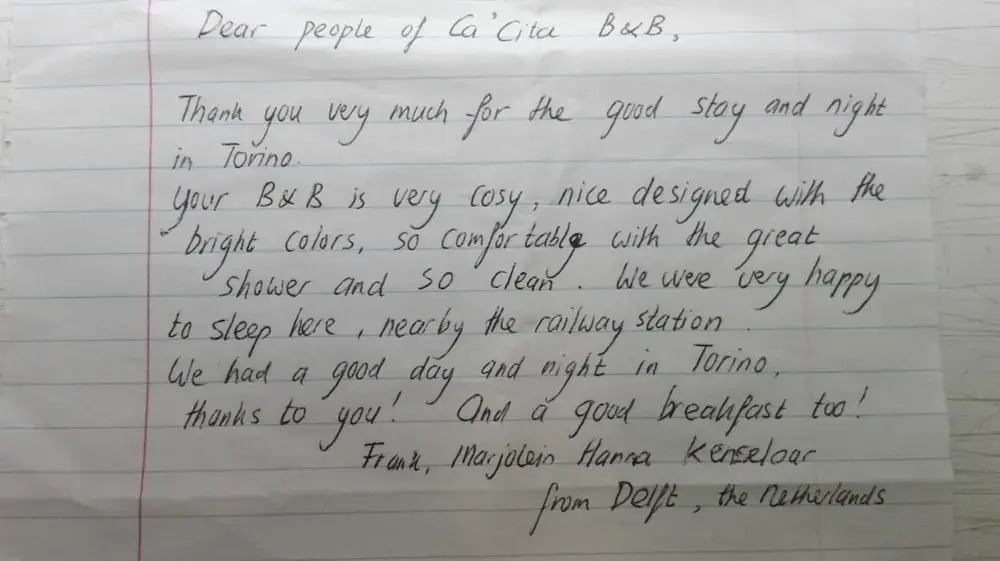 Dear people of Ca' Cita B&B,
Thank you very much for the good stay and night
in Torino.
Your B&B is very cosy, nice designed with the
bright colors, so comfortable with the great
shower and so clean. We were very happy
to sleep here, nearby the railway station.
We had a good day and night in Torino,
thanks to you! And a good breakfast too!
Frank, Marjolein Hanna
from Delft, the Netherlands